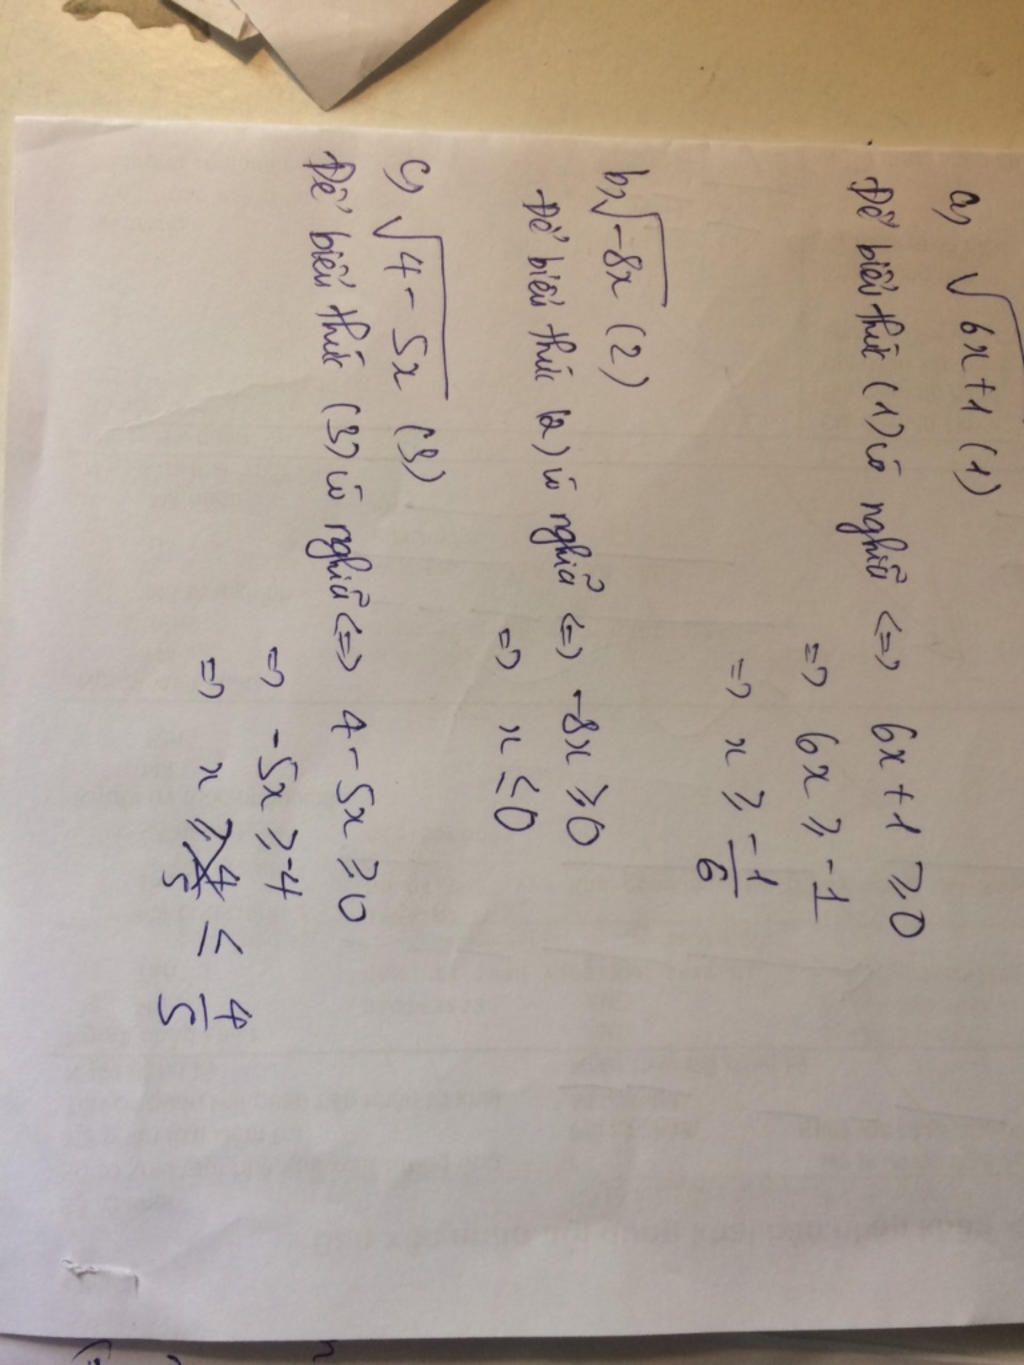 a, √6x+1 (1)
Để biểu thức (1) có nghĩa <=> 6x + 1 ≥ 0
=> 6x ≥ -1
=> x ≥ -1/6
b, √-8x (2)
Để biểu thức (2) có nghĩa <=> -8x ≥ 0
=> x ≤ 0
c, √4 - 5x (3)
Để biểu thức (3) có nghĩa <=> 4 - 5x ≥ 0
=> -5x ≥ -4
=> x ≤ 4/5